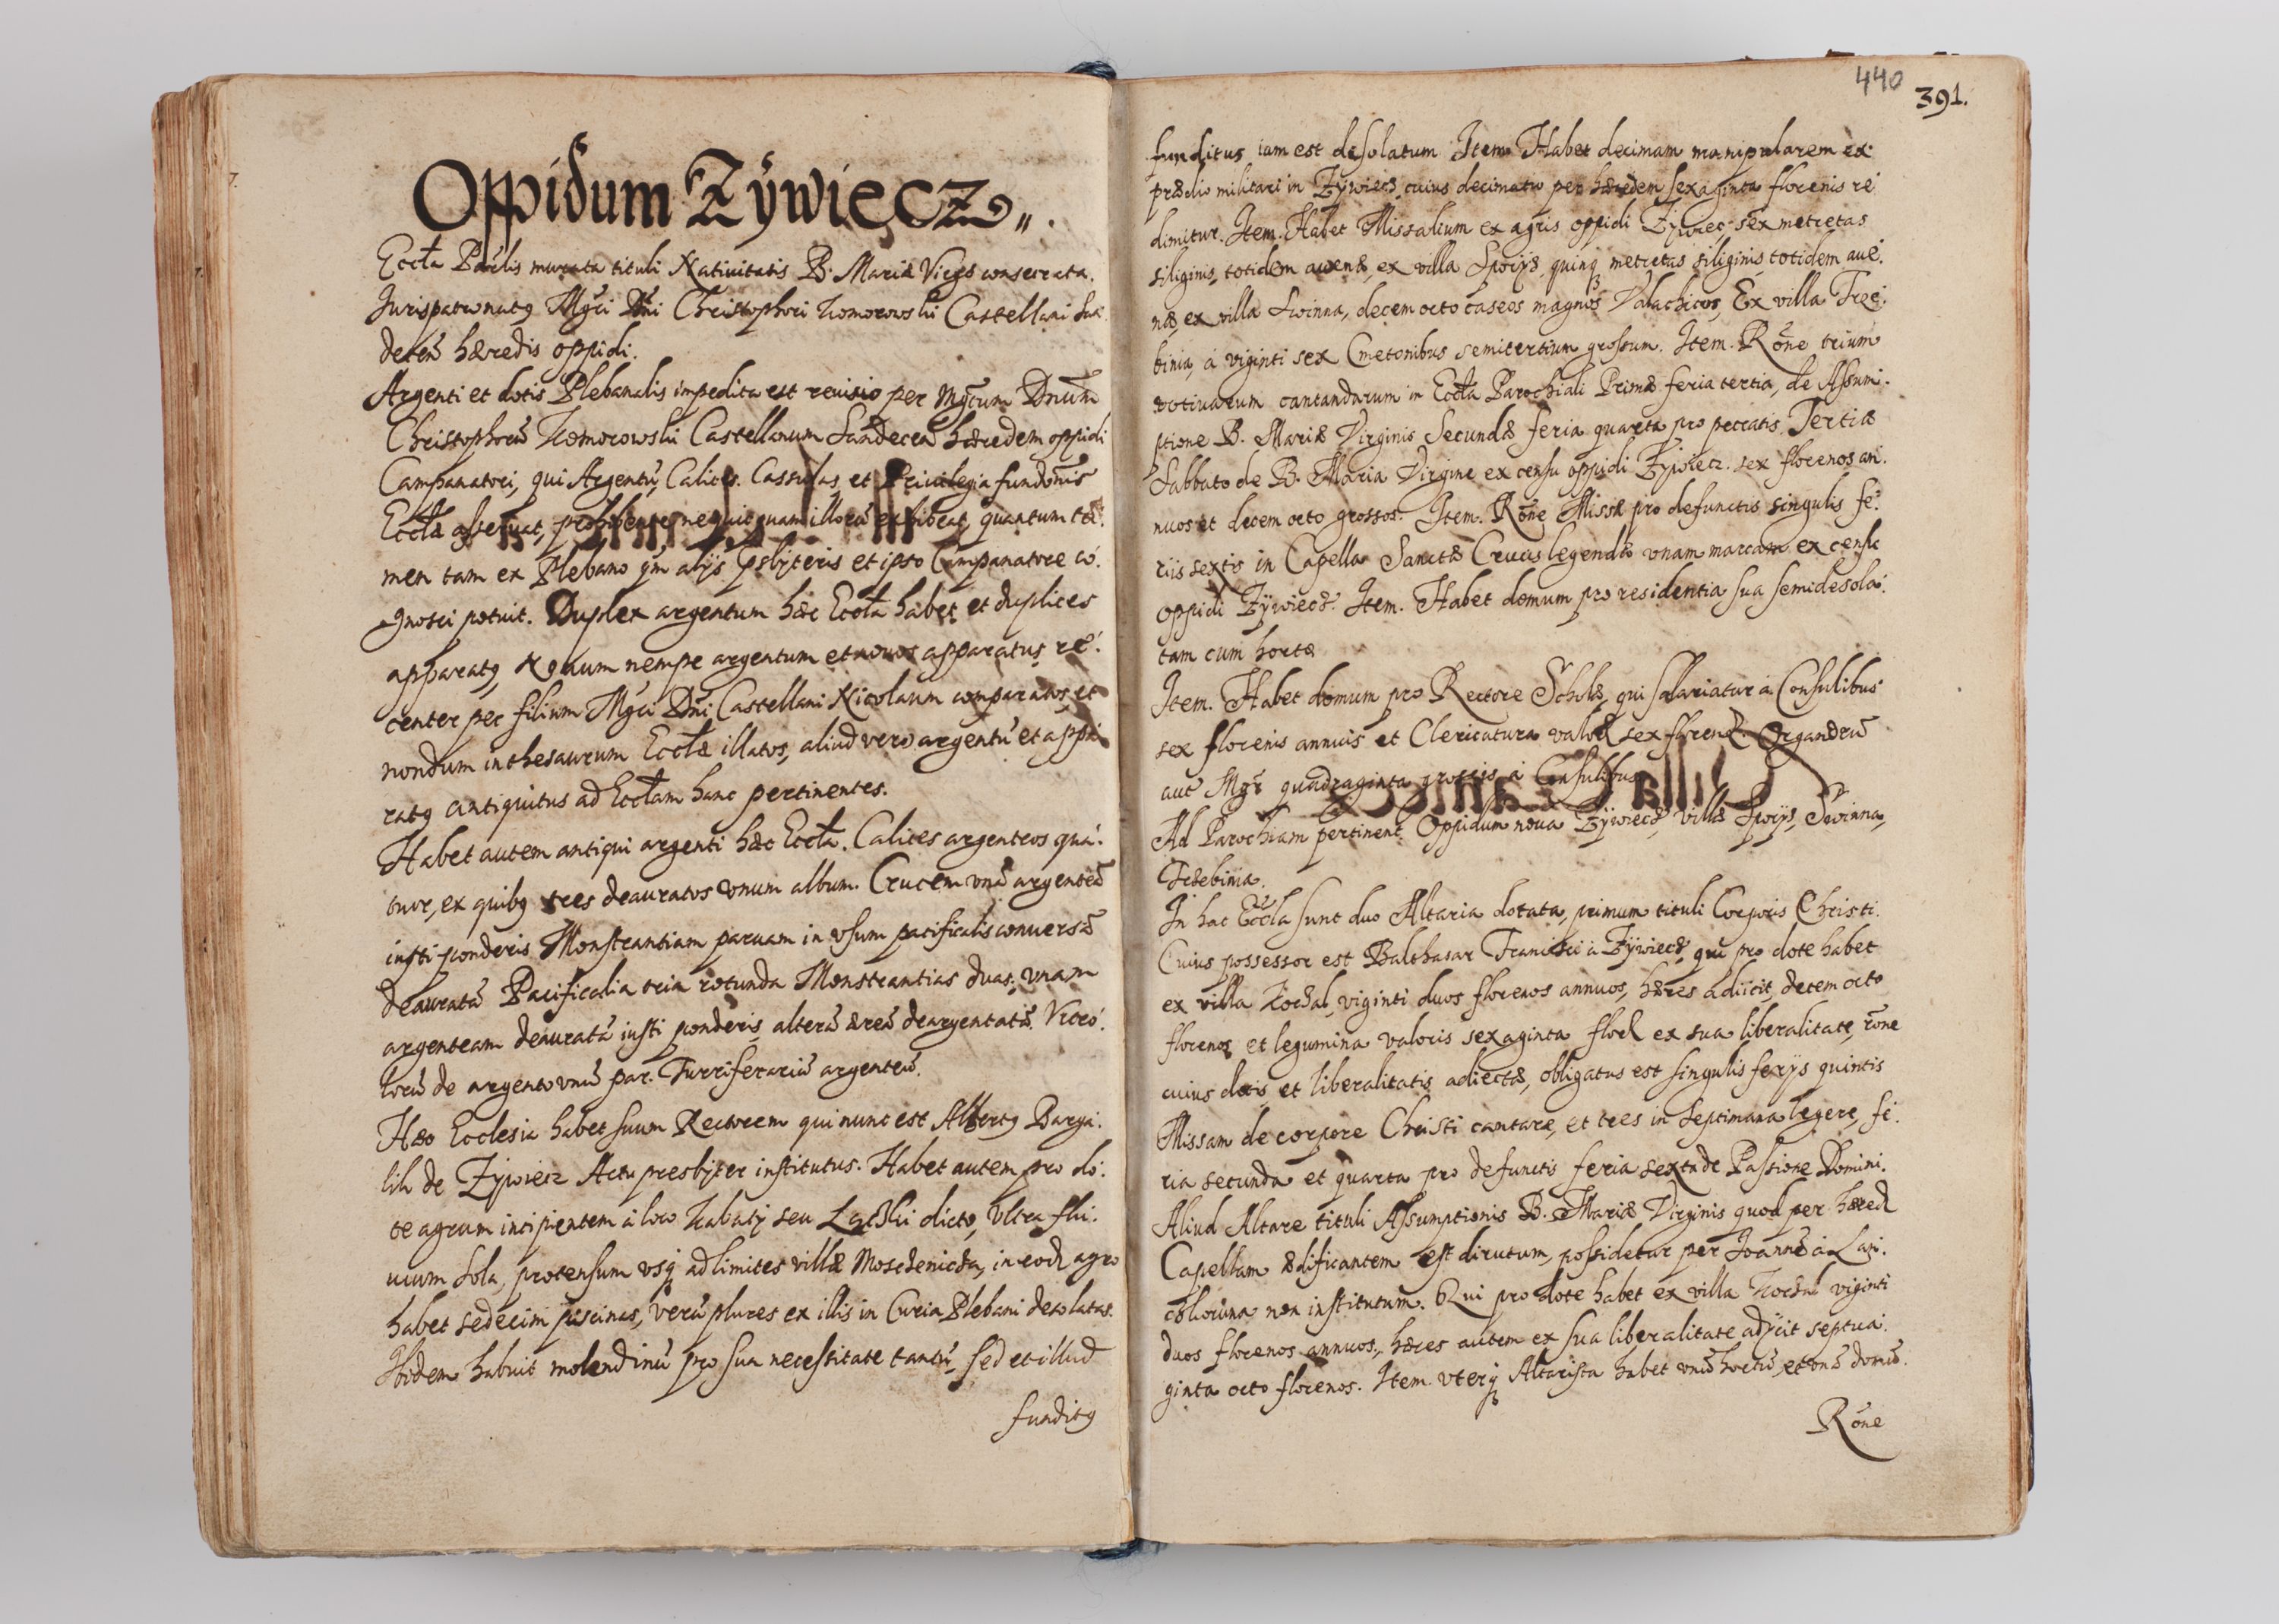 Oppidum Zÿwiecz
Eccła Parlis murata tituli Natiuitatis B. Mariæ Virgs consecrata.
Jurispatronatq Mgci Dni Christophori Komorowski Castellani San
decen hæredis oppidi.
Argenti et dotis Plebanalis impedita est reuisio per Mgcum Dnum
Christophorū Komorowski Castellanum Sandecen hæredem oppidi
Campanatori, qui Argentū, Calices. Cassulas, et Priuilegia fundonis
Eccłæ asseruat, prohibente ne quicquam illorū exhibeat, quantum ta
men tam ex Plebano qm alijs psbÿteris et ipso Campanatore co
gnosci potuit. Duplex argentum hæc Eccła habet et duplices
apparatq, Nouum nempe argentum et nouos apparatus re
center per filium Mgci Dni Castellani Nicolaum comparatos, et
nondum in thesaurum Eccłæ illatos, aliud vero argentū et appa
ratq antiquitus ad Eccłam hanc pertinentes.
Habet autem antiqui argenti hæc Eccła. Calices argenteos qua
tuor, ex quibq tres deauratos vnum album. Crucem vnā argenteā
iusti ponderis Monstrantiam paruam in vsum pacificalis conuersā
deauratā Pacificalia tria rotunda Monstrantias duas, vnam
argenteam deauratā iusti ponderis, alterā æreā deargentatā. Vrceo
lorū de argento vnū par. Turriferariū argenteū.
Hæc Ecclesia habet suum Rectorem qui nunc est Albertq Bargie
lik de Zÿwiecz Actu presbÿter institutus. Habet autem pro do
te agrum incipientem à loco Kabatÿ seu dicto, Vltra flu
uium Sola, protensum vsq ad limites villæ Mosczenicza, in eod agro
habet sedecim piscinas, verū plures ex illis in Curia Plebani desolatas.
Ibidem habuit molendinū pro sua necessitate tantū, sed et illud
funditq
440
391.
funditus iam est desolatum Item Habet decimam manipularem ex
prædio militari in Zÿwiecz, cuius decimatio per hæredem sexaginta florenis re
dimitur. Item. Habet Missalium ex agris oppidi Zÿwiec sex metretas
siliginis, totidem auenæ, ex villa quinq metretas siliginis totidem aue
næ ex villa Swinna, decem octo caseos magnos Valachicos, Ex villa Trze
binia, à viginti sex Cmetonibus semitertium grossum. Item. Rōne trium
votiuarum cantandarum in Eccła Parochiali Primæ feria tertia, de Assum
ptione B. Mariæ Virginis Secundæ feria quarta pro peccatis, Tertiæ
Sabbato de B. Maria Virgine ex censu oppidi Zÿwiecz. sex florenos an
nuos et decem octo grossos. Item. Rōne Missæ pro defunctis singulis fe
riis sextis in Capella Sanctæ Crucis legendæ vnam marcam ex censu
oppidi Zÿwiecz. Item. Habet domum pro residentia sua semidesola
tam cum horto
Item. Habet domum pro Rectore Scholæ, qui salariatur à Consulibus
sex florenis annuis et Clericatura valoris sex floren. Organarū
aut Mgr quadraginta grossis à Consulibus
Ad Parochiam pertinent. Oppidum noua Zÿwiecz, villæ Swinna,
Trzebinia.
In hac Eccła sunt duo Altaria dotata, primum tituli Corporis Christi.
Cuius possessor est Balthasar Francisci à Zÿwiecz, qui pro dote habet
ex villa viginti duos florenos annuos, hæres adiicit, decem octo
florenos et legumina valoris sexaginta flor ex sua liberalitate, rōne
cuius dotis, et liberalitatis adiectæ, obligatus est singulis ferijs quintis
Missam de corpore Christi cantare, et tres in septimana legere, fe
ria secunda et quarta pro defunctis feria sexta de Passione Domini.
Aliud Altare tituli Assumptionis B. Mariæ Virginis quod per hæred
Capellam ædificantem est dirutum, possidetur per Joannē à Lan
czkorona non institutum. Qui pro dote habet ex villa viginti
duos florenos annuos, hæres autem ex sua liberalitate adijcit septua
ginta octo florenos. Item. vterq Altarista habet vnū hortū, et vnā domū.
Rōne